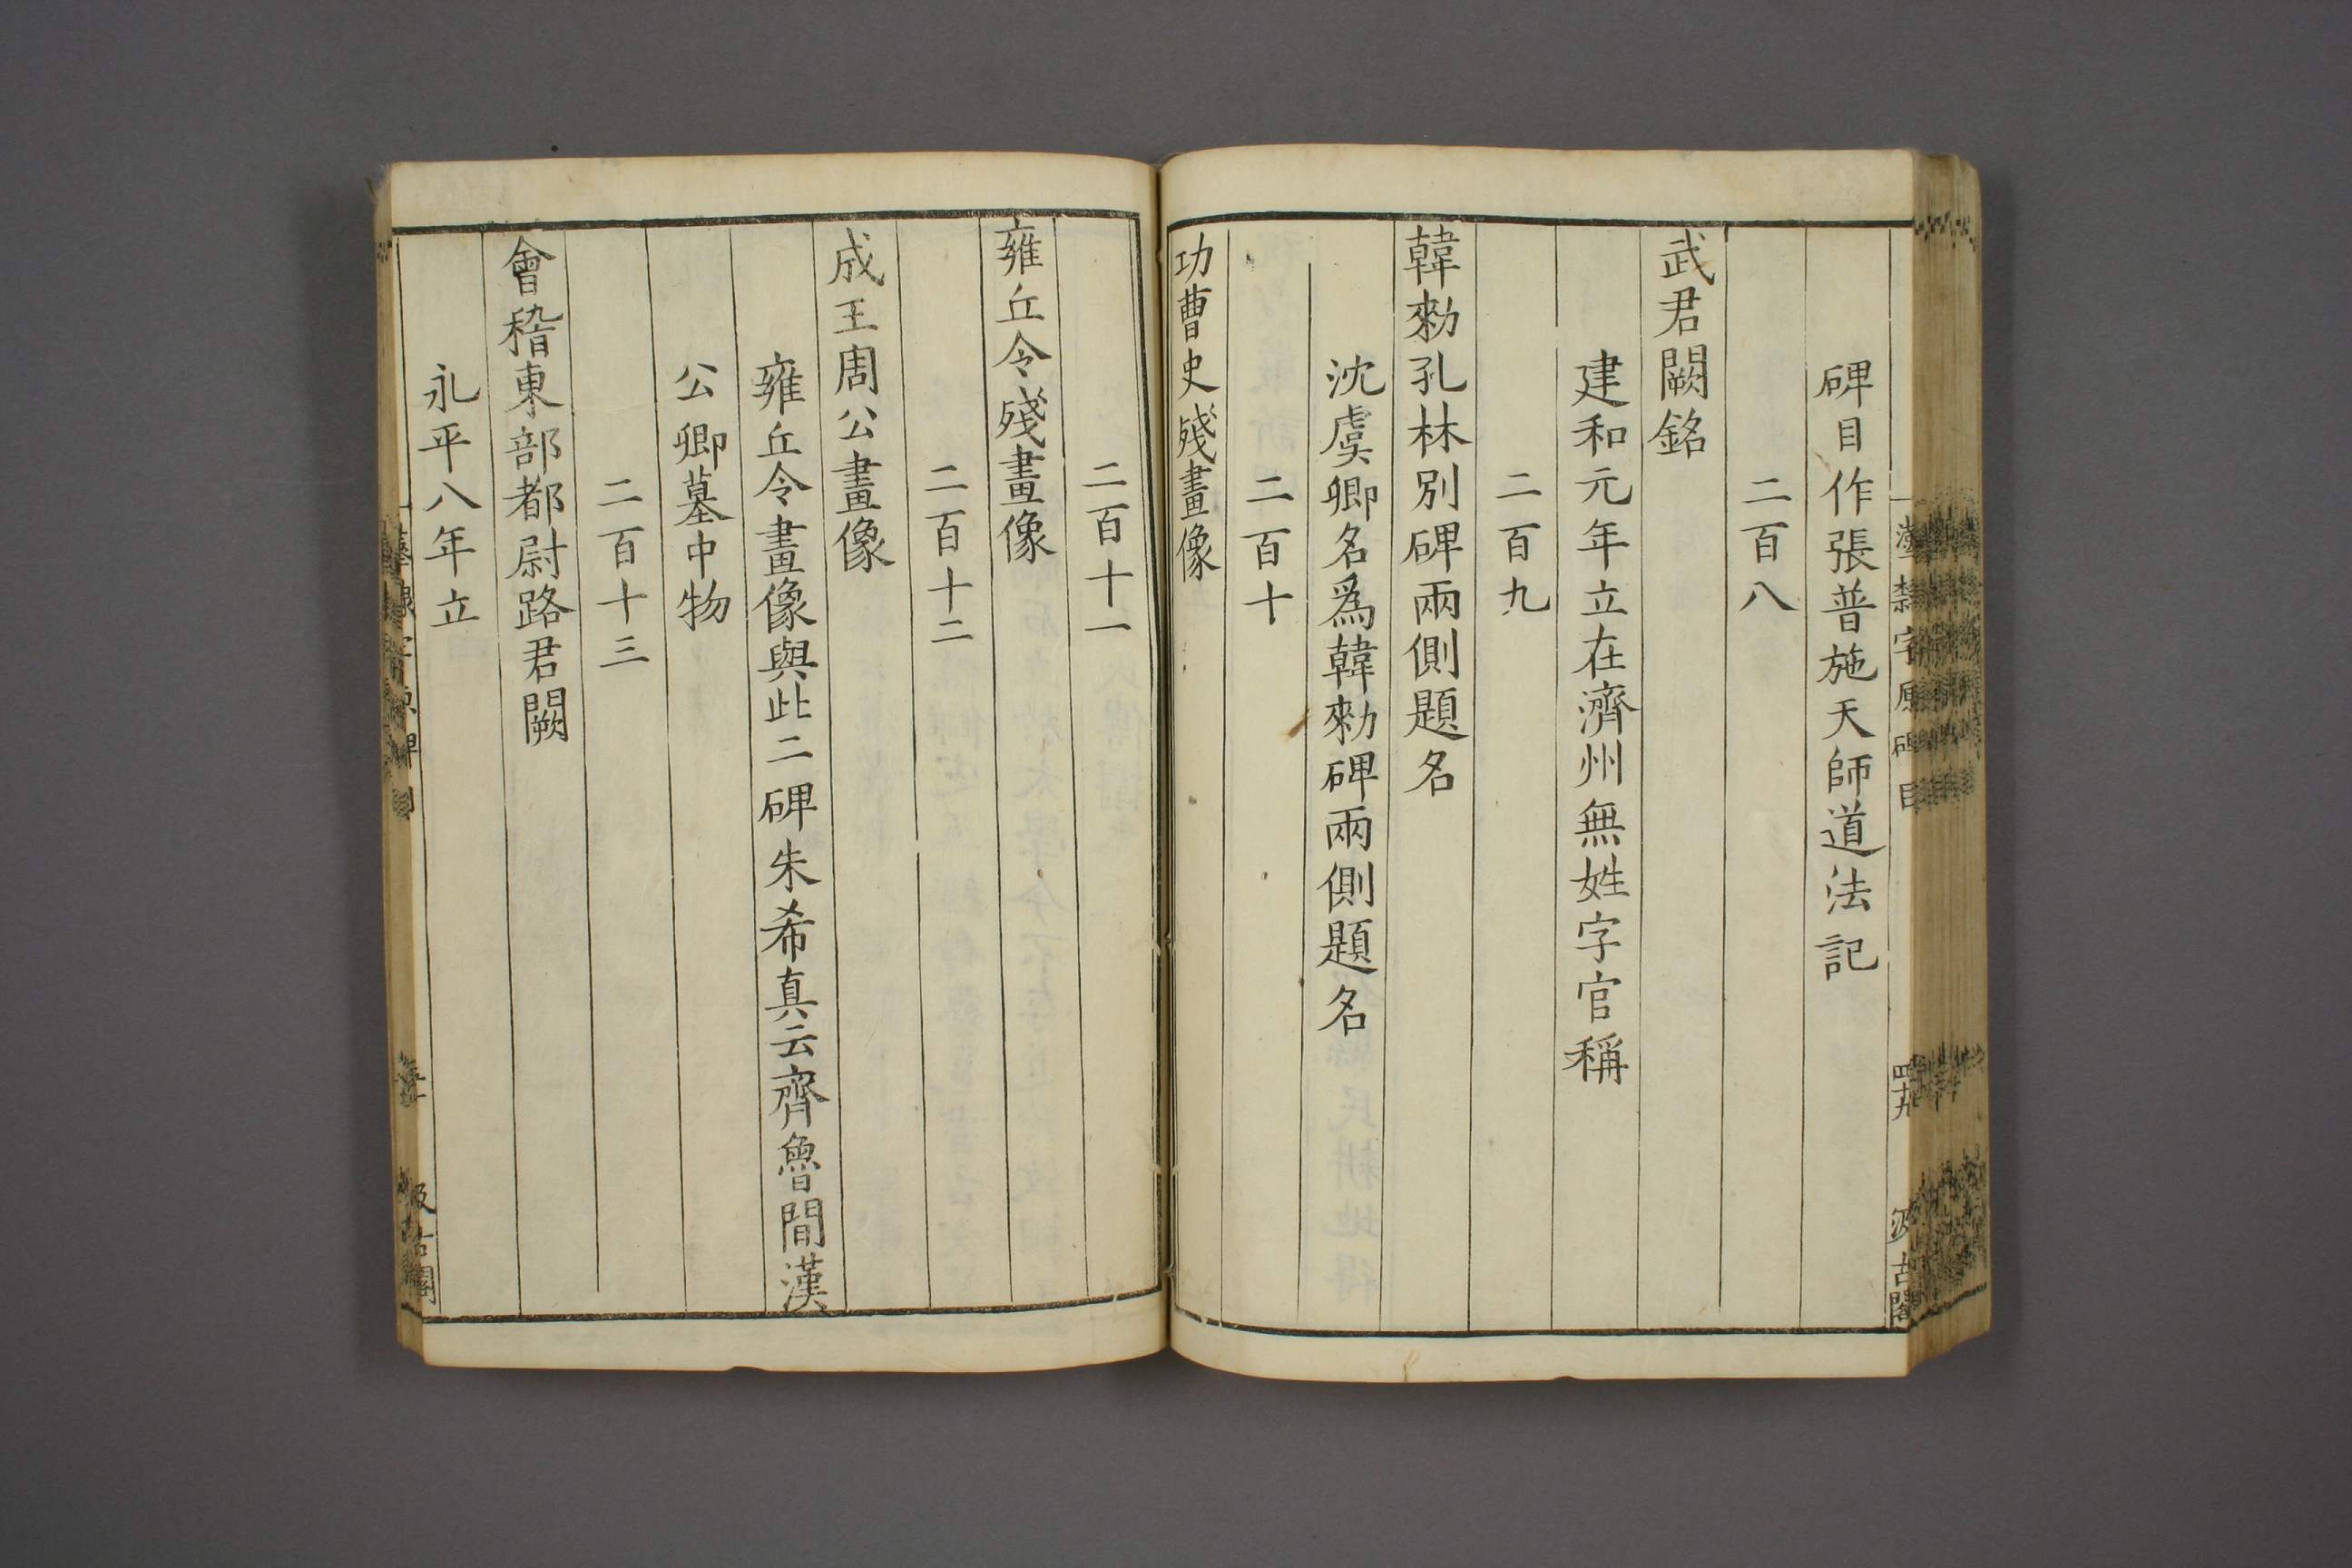 碑目作張普施天師道法記
二百八
武君闕銘
建和元年立在濟州無姓字官稱
二百九
韓勑孔林別碑兩側題名
沈虞卿名爲韓勑碑兩側題名
二百十
功曹史殘畫像
二百十一
雍丘令殘畫像
二百十二
成王周公畫像
雍丘令畫像與此二碑朱希真云齊魯間漢
公卿墓中物
二百十三
會稽東部都尉路君闕
永平八年立
漢隸字原碑目
四十九
汲古閣
汲古閣